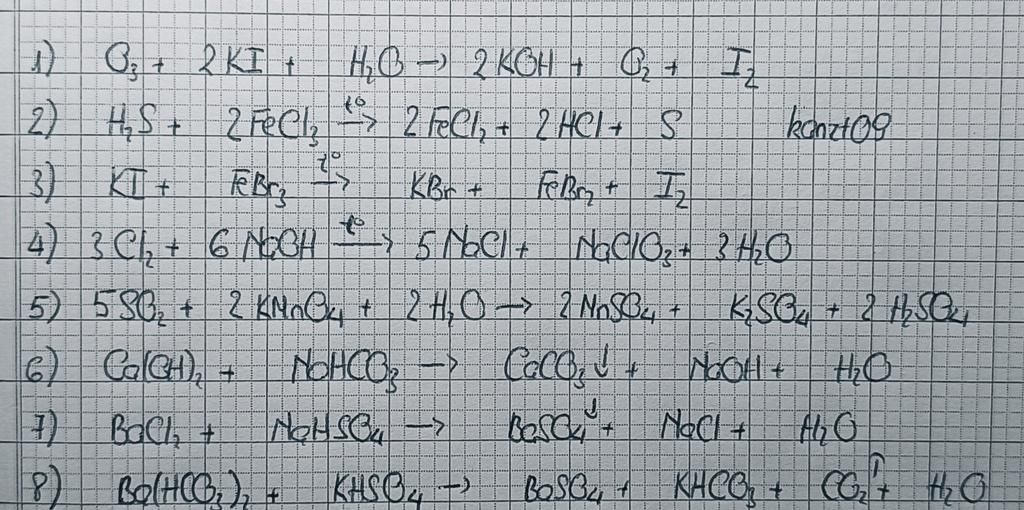 1) O₃ + 2KI + H₂O → 2KOH + O₂ + I₂
2) H₂S + 2FeCl₃ t° → 2FeCl₂ + 2HCl + S kanzt09
3) KI + FeBr₃ t° → KBr + FeBr₂ + I₂
4) 3Cl₂ + 6NaOH t° → 5NaCl + NaClO₃ + 3H₂O
5) 5SO₂ + 2KMnO₄ + 2H₂O → 2MnSO₄ + K₂SO₄ + 2H₂SO₄
6) Ca(OH)₂ + NaHCO₃ → CaCO₃↓ + NaOH + H₂O
7) BaCl₂ + NaHSO₄ → BaSO₄↓ + NaCl + H₂O
8) Ba(HCO₃)₂ + KHSO₄ → BaSO₄ + KHCO₃ + CO₂↑ + H₂O